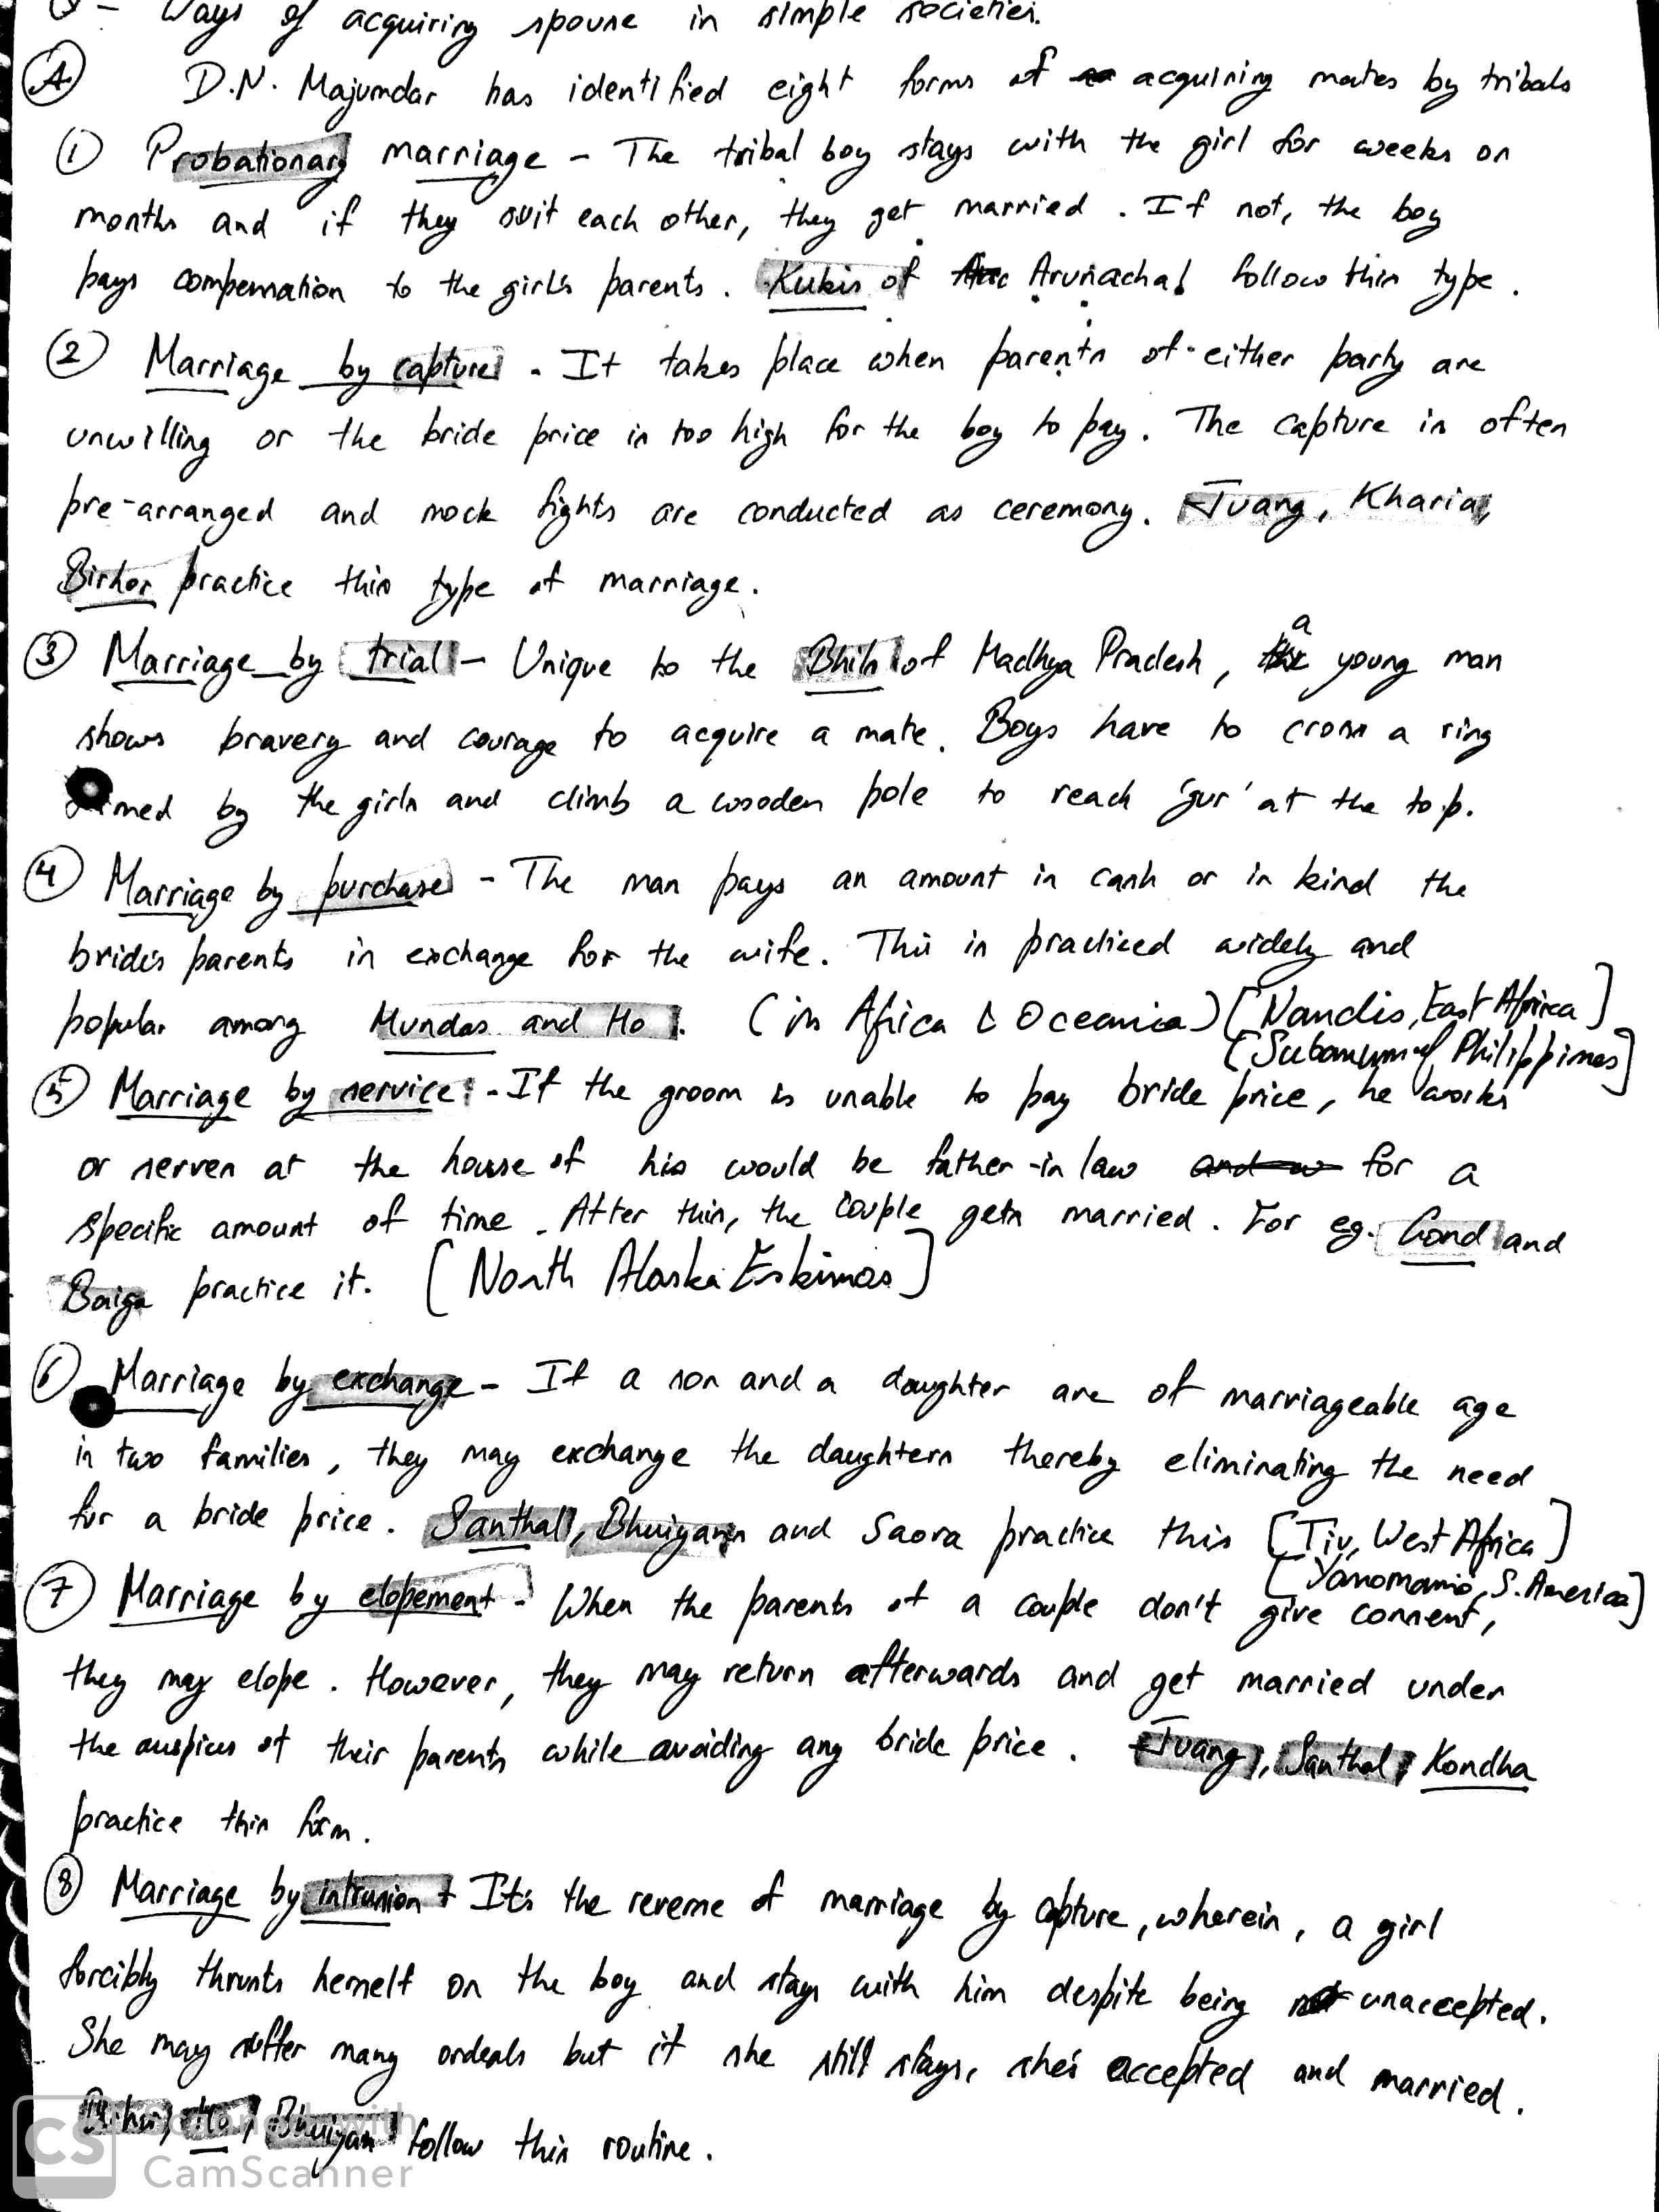 Q - Ways of acquiring spouse in simple societies.
A D.N. Majumdar has identified eight forms of acquiring mates by tribals
1 Probationary marriage - The tribal boy stays with the girl for weeks or
months and if they suit each other, they get married. If not, the boy
pays compensation to the girl's parents. Kukis of Arunachal follow this type.
2 Marriage by capture - It takes place when parents of either party are
unwilling or the bride price is too high for the boy to pay. The capture is often
pre-arranged and mock fights are conducted as ceremony. Juang, Kharia,
Birhor practice this type of marriage.
3 Marriage by trial - Unique to the Bhils of Madhya Pradesh, a young man
shows bravery and courage to acquire a mate. Boys have to cross a ring
formed by the girls and climb a wooden pole to reach 'gur' at the top.
4 Marriage by purchase - The man pays an amount in cash or in kind the
bride's parents in exchange for the wife. This is practiced widely and
popular among Mundas and Ho. (in Africa & Oceania) [Nandis, East Africa]
[Subanum of Philippines]
5 Marriage by service - If the groom is unable to pay bride price, he works
or serves at the house of his would be father-in law for a
specific amount of time. After this, the couple gets married. For eg. Gond and
Baiga practice it. [North Alaska Eskimos]
6 Marriage by exchange - If a son and a daughter are of marriageable age
in two families, they may exchange the daughters thereby eliminating the need
for a bride price. Santhal, Bhuiyans and Saora practice this [Tiv, West Africa]
[Yanomamo, S. America]
7 Marriage by elopement - When the parents of a couple don't give consent,
they may elope. However, they may return afterwards and get married under
the auspices of their parents while avoiding any bride price. Juang, Santhal, Kondha
practice this form.
8 Marriage by intrusion - It's the reverse of marriage by capture, wherein, a girl
forcibly thrusts herself on the boy and stays with him despite being unaccepted.
She may suffer many ordeals but if she still stays, she's accepted and married.
Birhor, Ho, Bhuiyan follow this routine.
CS Scanned with
CamScanner